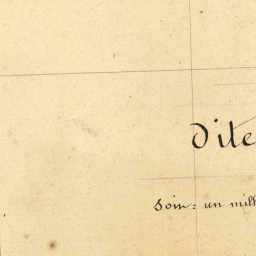 dite
Soin : un mill